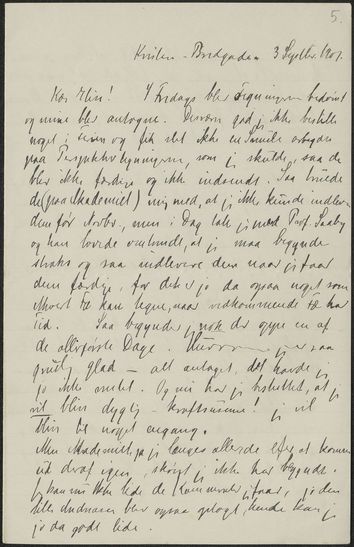 5.
Kvisten - Bredgaden 3 Septbr. 1901.
Kær Elin! I Fredags blev Tegningerne bedømt
og mine blev antagne. Desværre gad jeg ikke bestille
noget i Ferien og fik det ikke en Smule arbejdet
paa Perspektivtegningerne, som jeg skulde, saa de
blev ikke færdige og ikke indsendt. Saa
de (paa Akademiet) mig med, at jeg ikke kunde indlevere
dem før Novbr., men i Dag talte jeg med Prof.
og han lovede, at jeg maa begynde
straks og saa indlevere dem naar jeg faar
dem færdige, for det er jo da ogsaa noget som
ethvert kan tegne, naar vedkommende har
Tid. Saa begynder jeg nok der oppe en af
de allerførste Dage. jeg er saa
glad — alt antaget, det havde jeg
jo ikke ventet. Og nu har jeg besluttet, at jeg
vil blive dygtig - jeg vil
blive til noget engang.
Men Akademiet, ja jeg længes allerede efter at komme
ud deraf igen, skønt jeg ikke har begyndt.
Jeg kan nu ikke lide de jeg faar, jo den
lille bliver ogsaa, hende kan jeg
jo da godt lide.